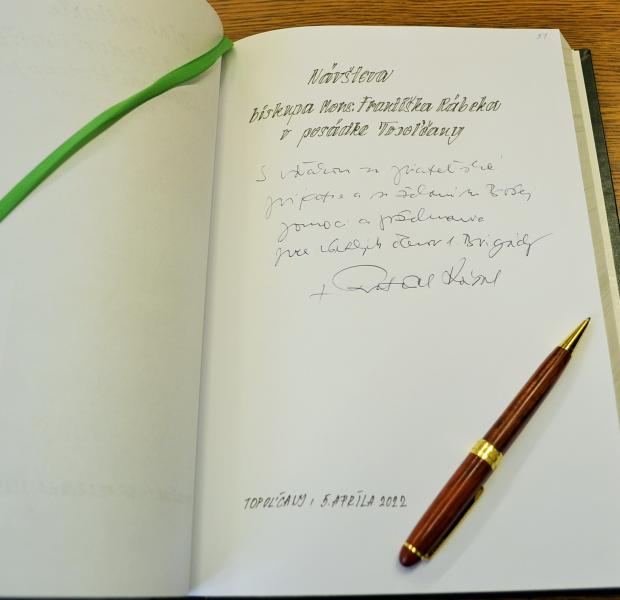 51
Návšteva
biskupa Mons. Františka Rábeka
v posádke Topoľčany
S vďakou za priateľské
prijatie a so želaním Božej
pomoci a požehnania
pre všetkých členov 1. Brigády
+ František Rábek
TOPOĽČANY, 5. APRÍLA 2022